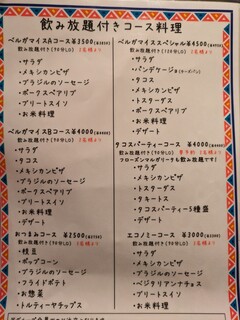 飲み放題付きコース料理
ベルガマイスAコース ¥3500
飲み放題付き(90分LO) 2名様より
・サラダ
・メキシカンピザ
・ブラジルのソーセージ
・ポークスペアリブ
・ブリートスイソ
・お米料理
ベルガマイスBコース ¥4000
飲み放題付き(90分LO) 2名様より
・サラダ
・タコス
・メキシカンピザ
・ブラジルのソーセージ
・ポークスペアリブ
・ブリートスイソ
・お米料理
おつまみコース ¥2500
飲み放題付き(90分LO) 2名様より
・枝豆
・ポップコーン
・ブラジルのソーセージ
・フライドポテト
・お惣菜
・トルティーヤチップス
ベルガマイススペシャル ¥4500
飲み放題付き(90分LO) 2名様より
・サラダ
・パンデケージョ
・メキシカンピザ
・トスターダス
・ポークスペアリブ
・ブリートスイソ
・お米料理
・デザート
タコスパーティーコース ¥4000
飲み放題付き(90分LO)
フローズンマルガリータも飲み放題です!
・サラダ
・メキシカンピザ
・トスターダス
・タキートス
・タコスパーティー5種盛
・お米料理
・デザート
エコノミーコース ¥3000
飲み放題付き(90分LO) 2名様より
・サラダ
・メキシカンピザ
・ブラジルのソーセージ
・ベジタリアンナチョス
・ブリートスイソ
・お米料理